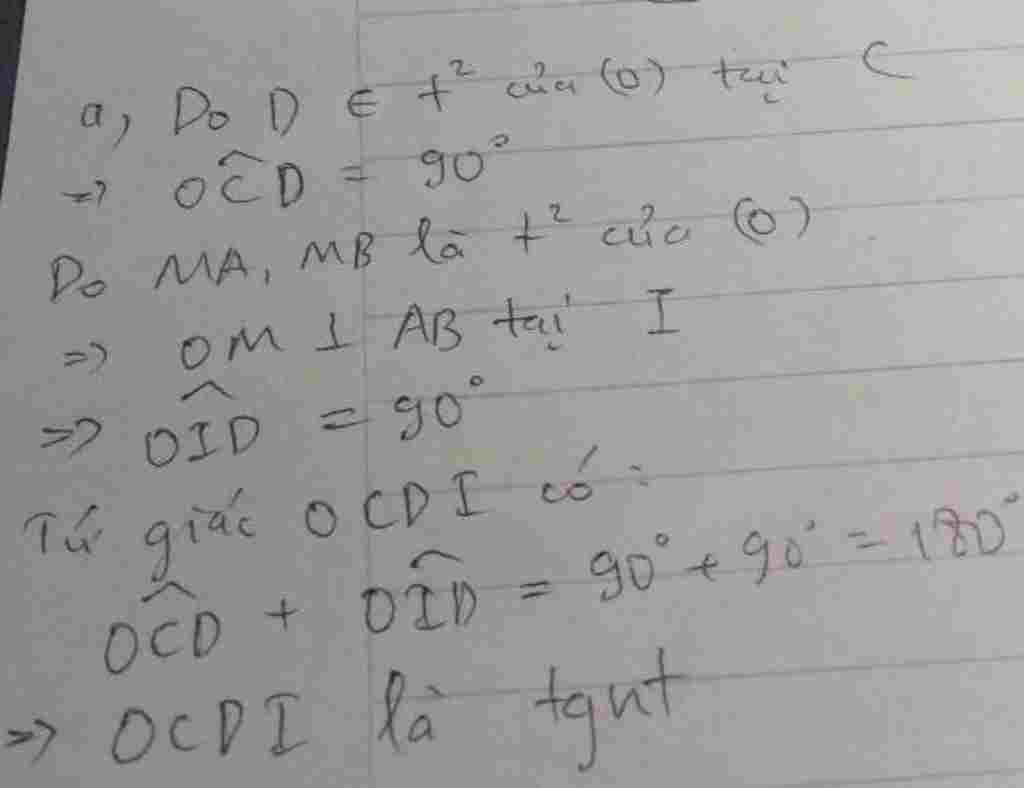 a, Do D ∈ t² của (O) tại C
=> OĈD = 90°
Do MA, MB là t² của (O)
=> OM ⊥ AB tại I
=> OÎD = 90°
Tứ giác OCDI có:
OĈD + OÎD = 90° + 90° = 180°
=> OCDI là tgnt